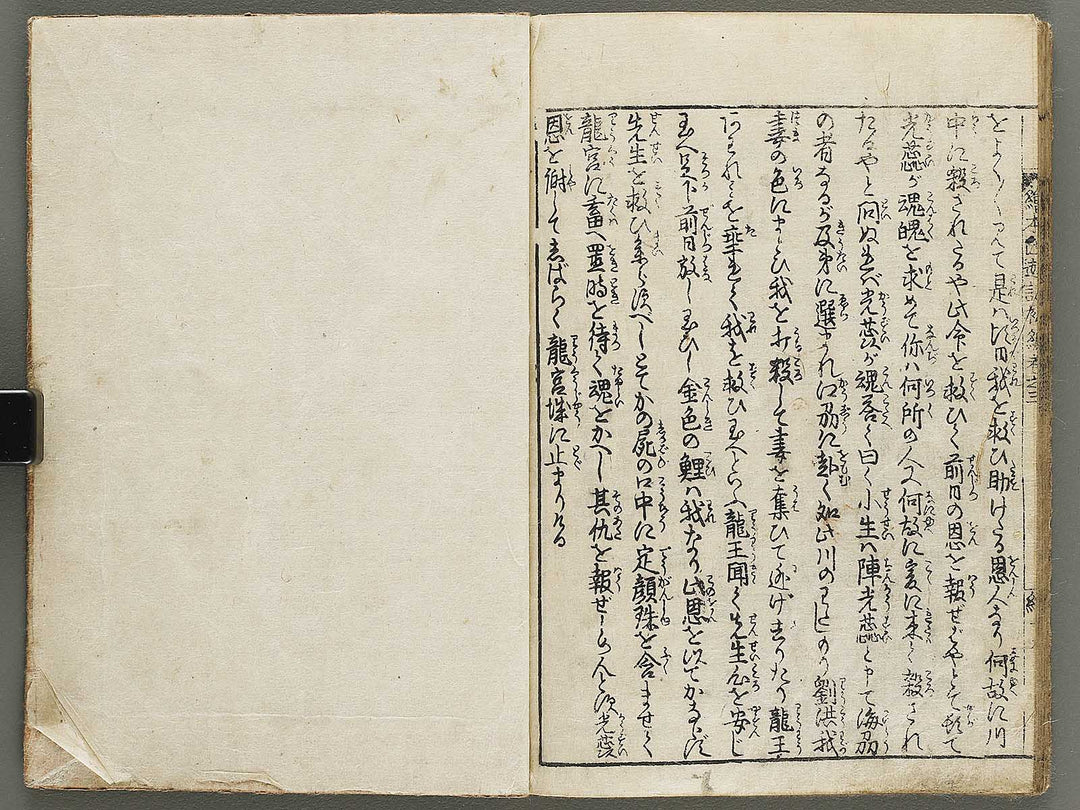 是ハ先日我を救ひ助けたる恩人なり何故に川
中に殺されたるや此命を救ひて前日の恩を報ぜばやとて
光蕊が魂魄を求めて你ハ何所の人又何故に爰に来て殺され
たるやと問ぬれバ光蕊が魂答て曰く小生ハ陳光蕊と申て海州
の者なるが及第に選まれ江州に赴く如此川のわたしもり劉洪我
妻の色にまよひ我を打殺して妻を奪ひて逃げ去りたり龍王
あはれみを垂れて我を救ひ玉へといふ龍王聞て先生心を安じ
玉へ足下前日放し玉ひし金色の鯉ハ我なり此恩を以てかならず
先生を救ひ参らすべしとてかの屍の口中に定顔珠を含ませて
龍宮に畜へ置時を待て魂をかへし其仇を報ぜしめんとす光蕊
恩を謝してしばらく龍宮城に止まりける